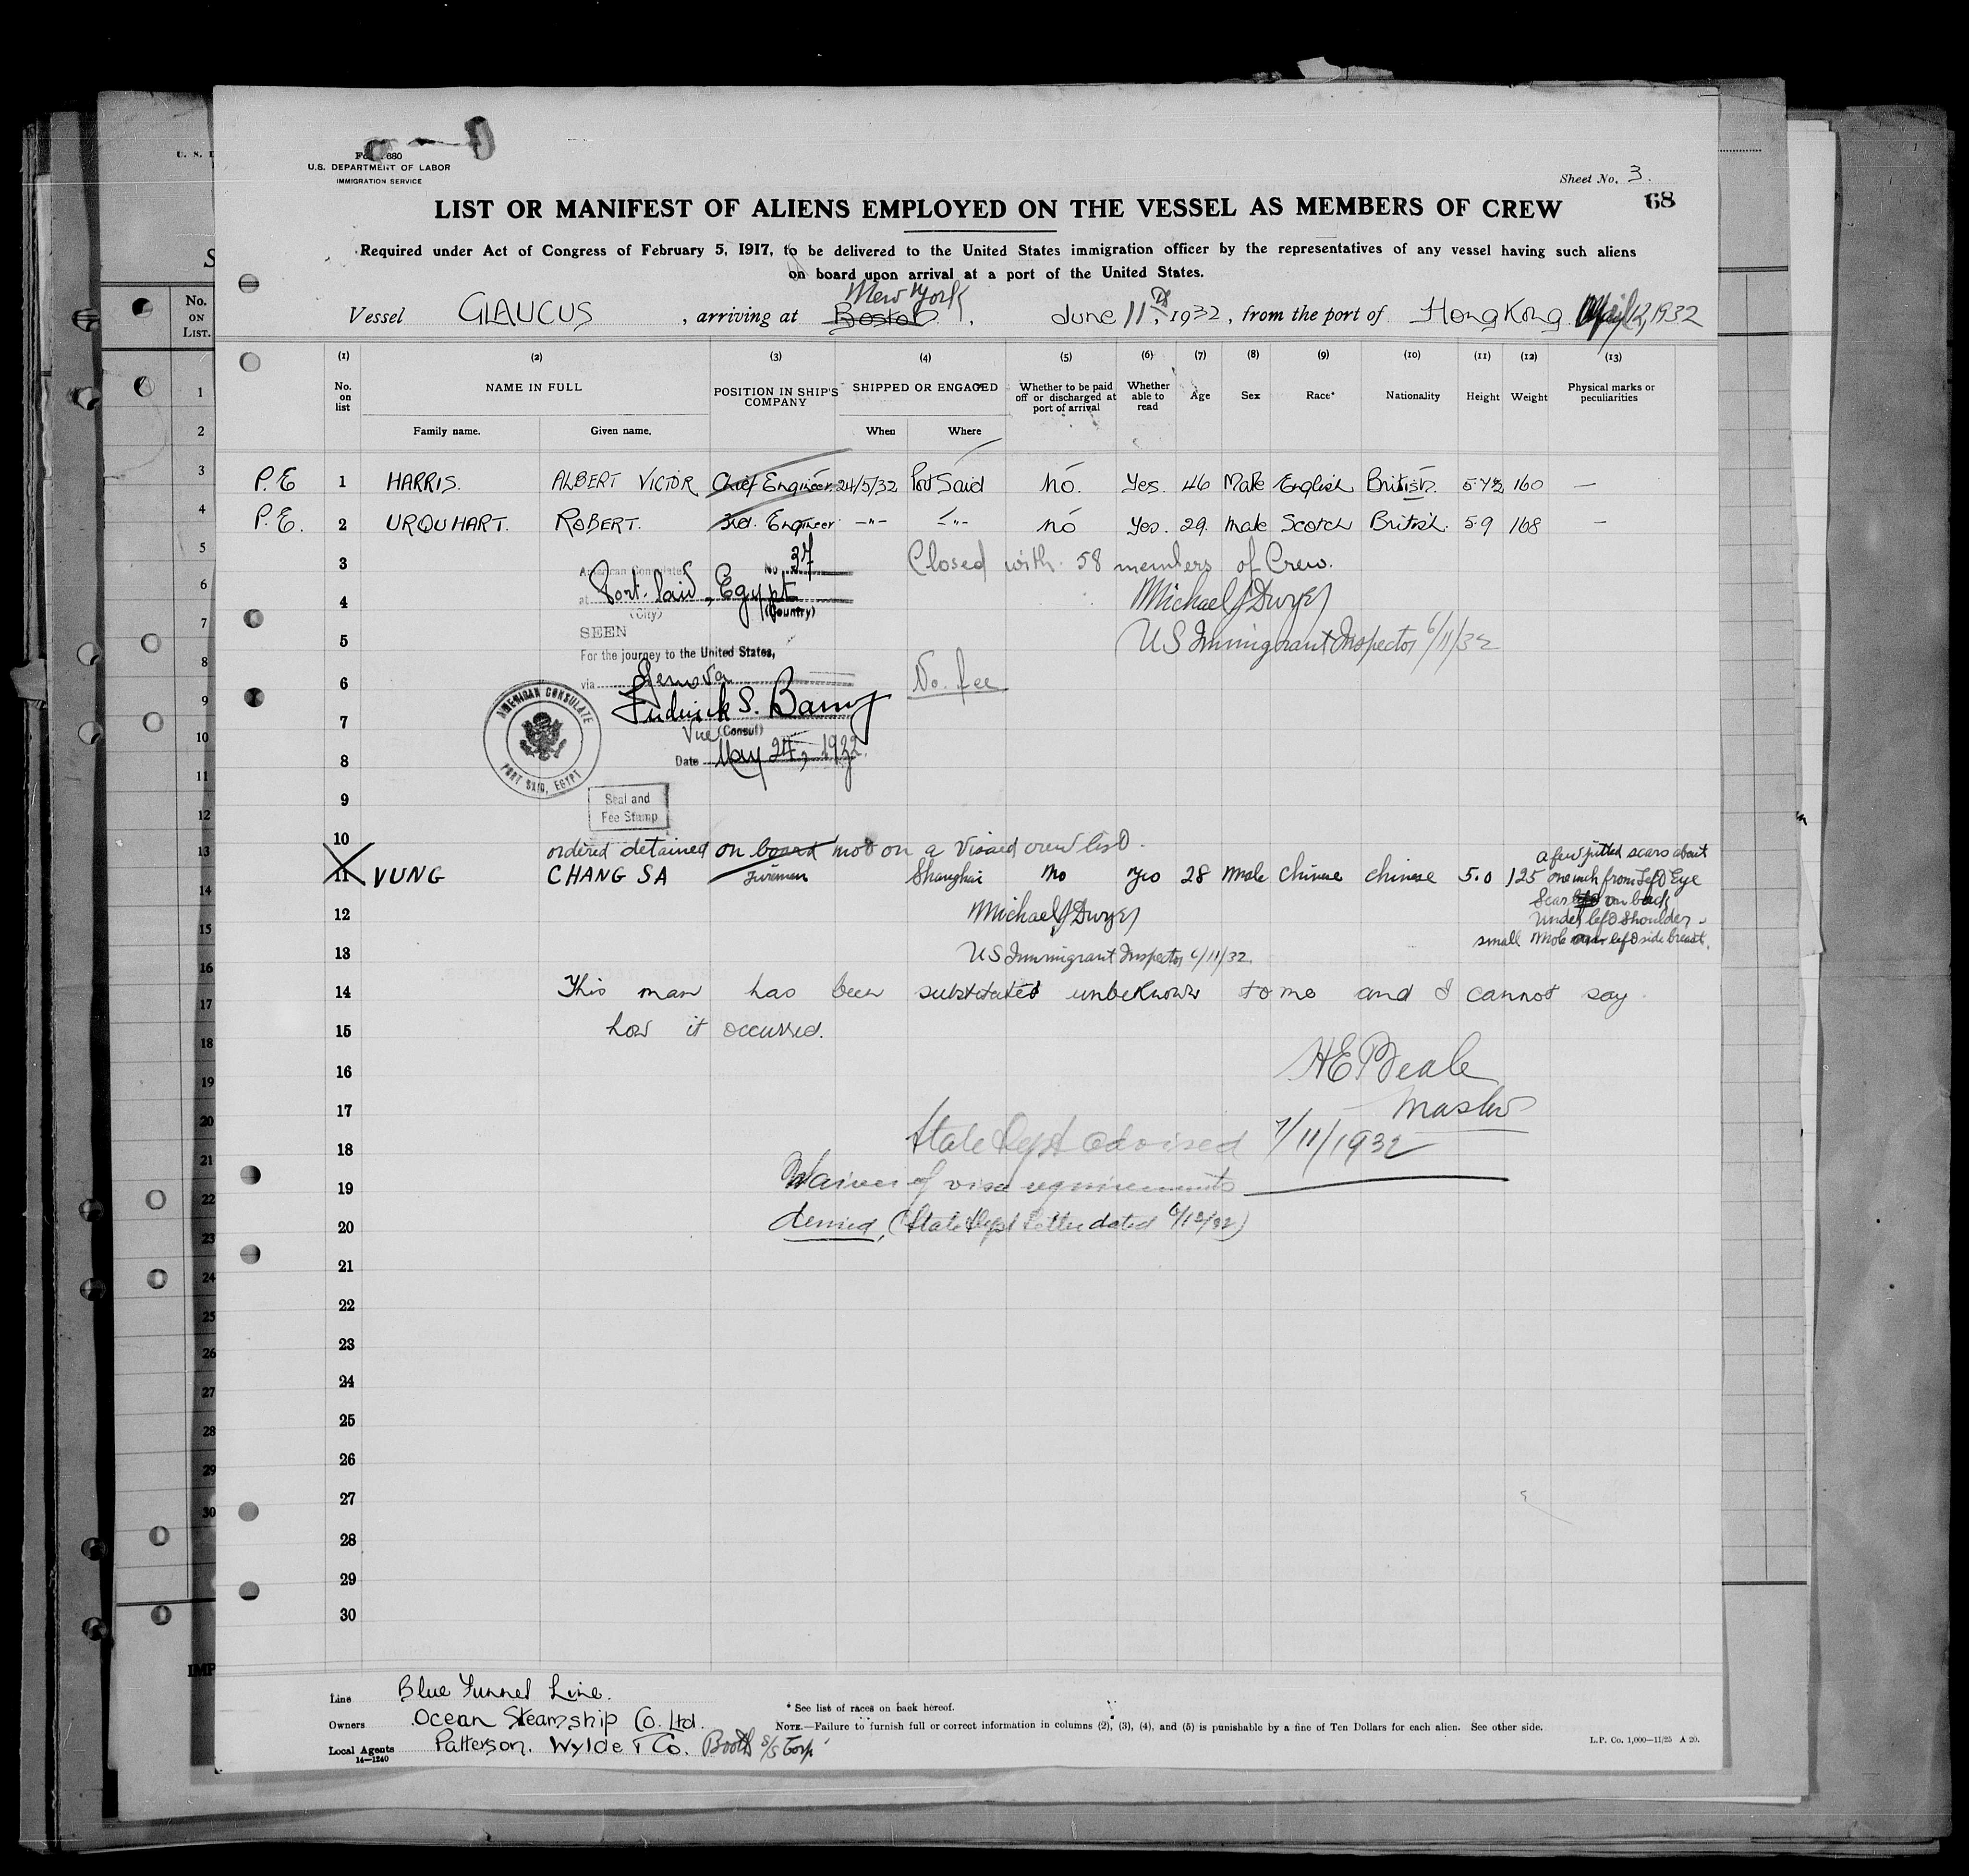 Form 680
U.S. DEPARTMENT OF LABOR
IMMIGRATION SERVICE
Sheet No. 3.
68
LIST OR MANIFEST OF ALIENS EMPLOYED ON THE VESSEL AS MEMBERS OF CREW
Required under Act of Congress of February 5, 1917, to be delivered to the United States immigration officer by the representatives of any vessel having such aliens
on board upon arrival at a port of the United States.
New York
Vessel GLAUCUS, arriving at Boston, June 11th, 1932, from the port of Hong Kong April 12, 1932
(1) (2) (3) (4) (5) (6) (7) (8) (9) (10) (11) (12) (13)
No. on list NAME IN FULL POSITION IN SHIP'S COMPANY SHIPPED OR ENGAGED Whether to be paid off or discharged at port of arrival Whether able to read Age Sex Race* Nationality Height Weight Physical marks or peculiarities
Family name. Given name. When Where
P.E 1 HARRIS. ALBERT VICTOR Chief Engineer 24/5/32 Port Said No. Yes. 46 Male English British. 5-7½ 160 —
P.E. 2 URQUHART. ROBERT. 3rd. Engineer -"- -"- No Yes. 29. Male Scotch British. 5-9 168 —
3 Closed with 58 members of Crew.
American Consulate No. 37
4 at Port Said, Egypt Michael J Dwyer
(City) (Country)
5 SEEN US Immigrant Inspector 6/11/32
For the journey to the United States,
6 via Genova No fee
Frederick S. Barny
7 Vice (Consul)
8 Date May 24, 1932
AMERICAN CONSULATE
PORT SAID, EGYPT
9 Seal and
Fee Stamp
10 ordered detained on board not on a Visaed crew list.
11 VUNG CHANG SA Fireman Shanghai No Yes 28 Male Chinese Chinese 5.0 125 a few pitted scars about
one inch from Left Eye
Scar on back
under left shoulder
small mole left side breast.
12 Michael J Dwyer
13 US Immigrant Inspector 6/11/32
14 This man has been substituted unbeknown to me and I cannot say
15 how it occurred.
16 H E Beale
17 Master
18 State Dept advised 7/11/1932
19 Waiver of visa requirements
20 denied, (State Dept letter dated
21
22
23
24
25
26
27
28
29
30
Line Blue Funnel Line.
Owners Ocean Steamship Co. Ltd.
Local Agents Patterson. Wylde & Co. Booth S/S Corp
14—1240
* See list of races on back hereof.
NOTE.—Failure to furnish full or correct information in columns (2), (3), (4), and (5) is punishable by a fine of Ten Dollars for each alien. See other side.
L.P. Co. 1,000—11/25 A 20.